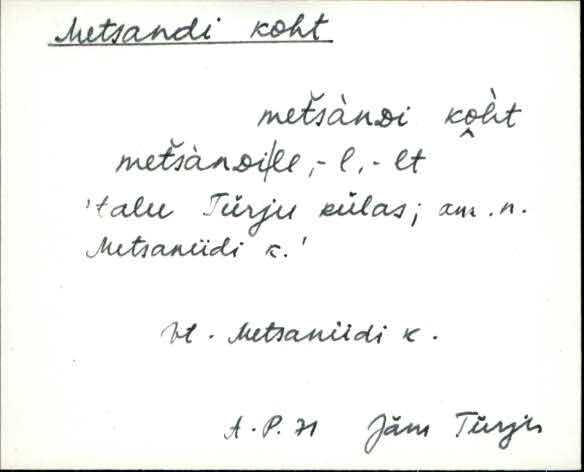 Metsandi koht
metšàndi ko̭h̀t
metšàndi|le, -l, -lt
'talu Türju külas; am. n.
Metsaniidi k.'
Vt. Metsaniidi k.
A.P. 71 Jäm Türju